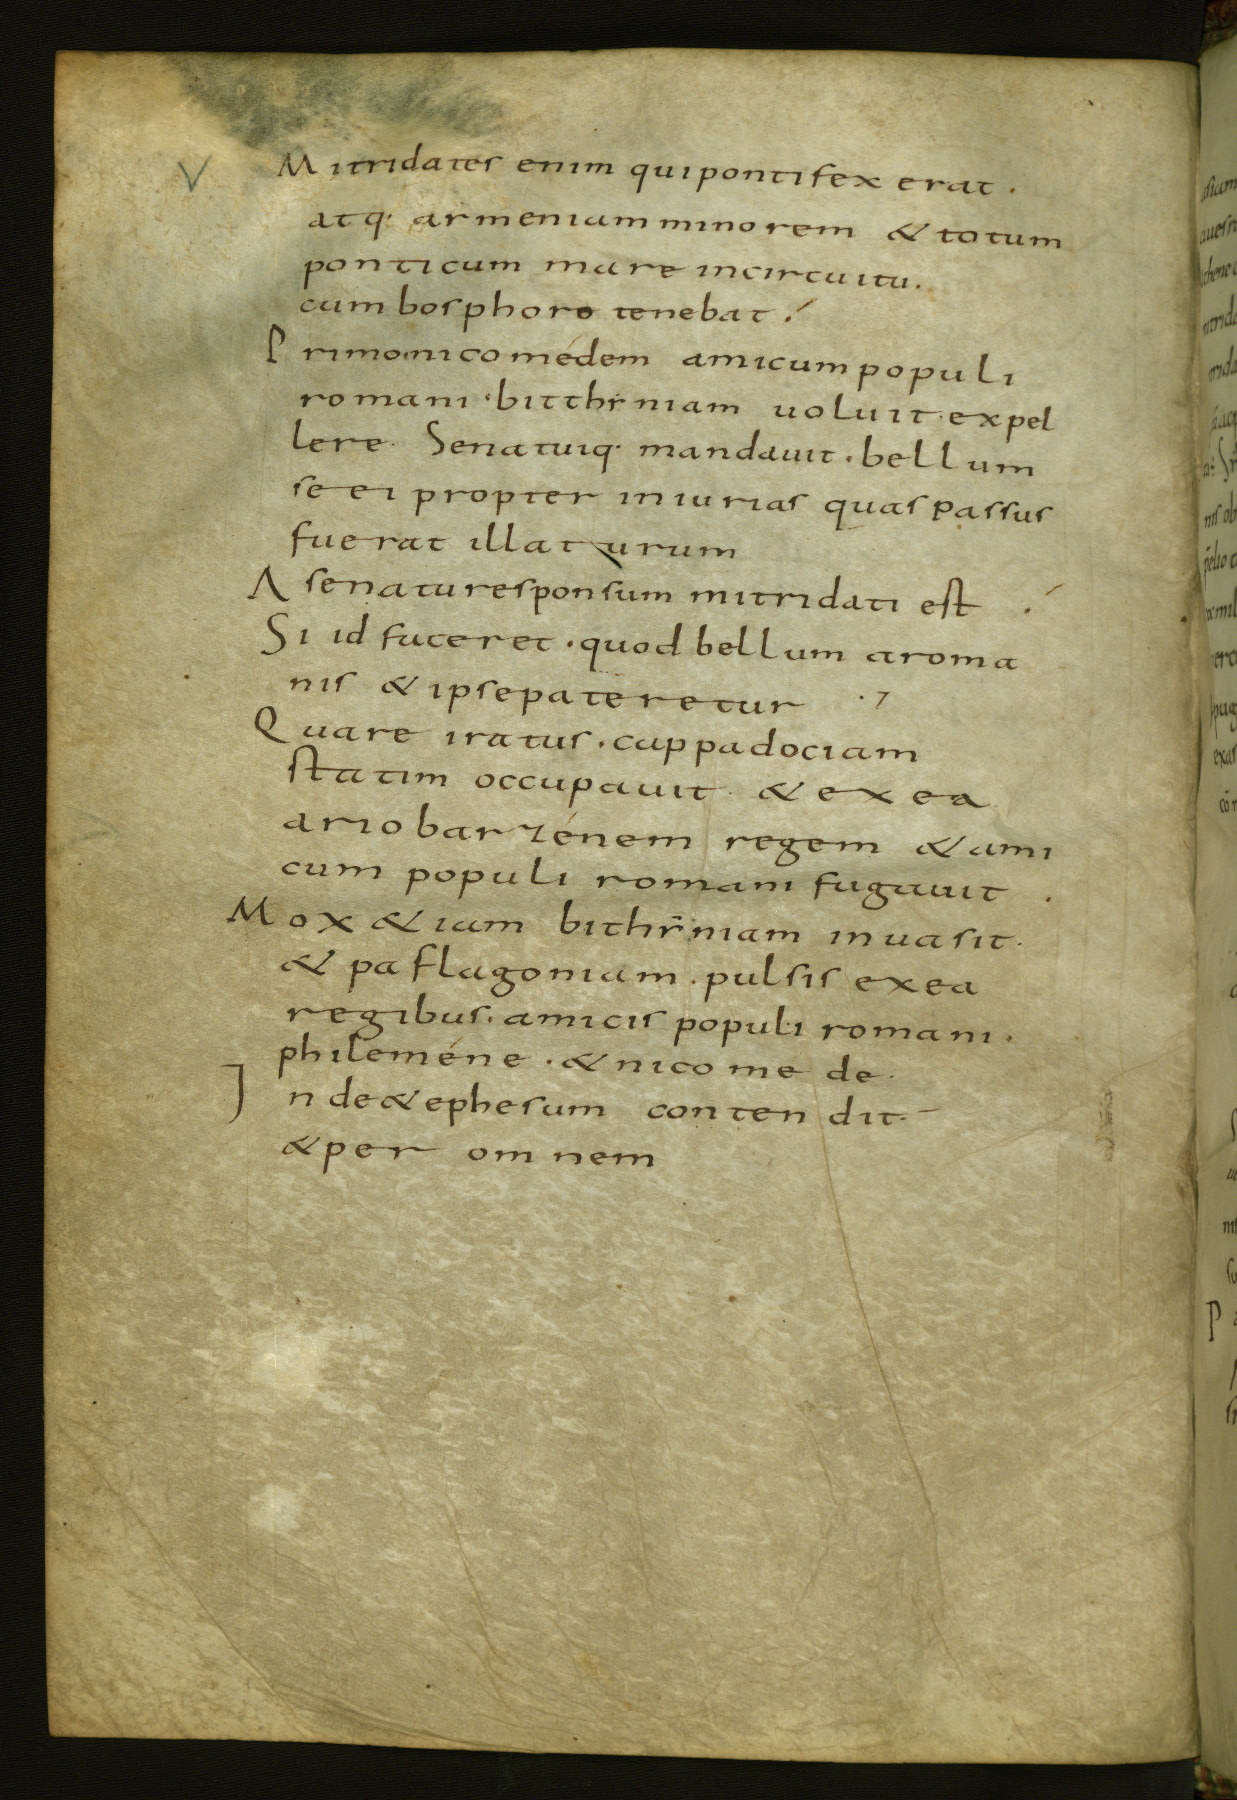 V Mitridates enim qui pontifex erat.
atq; armeniam minorem & totum
ponticum mare incircuitu.
cum bosphoro tenebat.
Primo nicomédem amicum populi
romani. bitthyniam uoluit expel
lere. Senatuiq. mandauit. bellum
se ei propter iniurias quas passus
fuerat illaturum
A senatu responsum mitridati est.
Si id faceret. quod bellum aroma
nis & ipse pateretur.
Quare iratus. cappadociam
statim occupauit. & exea
ariobarzénem regem & ami
cum populi romani fugauit.
Mox &iam bithyniam inuasit.
& paflagoniam. pulsis exea
regibus. amicis populi romani.
phileméne. & nicomede.
Inde & ephesum contendit.
& per omnem